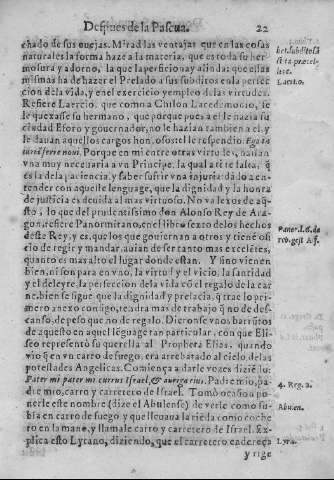 Despues de la Pascua. 22
chado de sus ouejas. Mirad las ventajas que en las cosas
naturales la forma haze a la materia, que es toda su her-
mosura y adorno, la que la perficiona y alinda: que essas
mismas ha de hazer el Prelado a sus subditos en la perfec
cion de la vida, y en el exercicio y empleo de las virtudes.
Refiere Laercio, que como a Chilon Lacedemonio, se
le quexasse su hermano, que porque pues a el le hazia su
ciudad Eforo y governador, no le hazian tambien a el, y
le dauan aquellos cargos honrosos: el le respondio, Ego in
iuriã ferre noui. Porque en mi entre otras virtudes, hallan
vna muy necessaria a vn Principe, la qual a ti te falta, q̃
es la de la paciencia, y saber sufrir vna injuria: dãdo a en-
tender con aquelle lenguage, que la dignidad y la honra
de justicia es deuida al mas virtuoso. No va lexos de aq̃s-
to, lo que del prudentissimo don Alonso Rey de Ara-
gon, refiere Panormitano, en el libro sexto de los hechos
deste Rey, y es, que los que gouiernan a otros y tienẽ ofi
cio de regir y mandar, auian de ser tanto mas excelẽtes,
quanto es mas alto el lugar donde estan. Y sino vienen
bien, ni son para en vno, la virtud y el vicio, la santidad
y el deleyte, la perfeccion de la vida cõ el regalo de la car
ne, bien se sigue que la dignidad y prelacia, q̃ trae lo pri-
mero anexo consigo, traera mas de trabajo q̃ no de des-
canso, de peso que no de regalo. Dieronse vnos barrũtos
de aquesto en aquel lẽguage tan particular, con que Eli-
seo representò su querella al Propheta Elias, quando
viò q̃ en vn carro de fuego, era arrebatado al cielo de las
potestades Angelicas. Comiença a darle vozes diziẽdo:
Pater mi pater mi currus Israel, & auriga eius. Padre mio, pa-
dre mio, carro y carretero de Israel. Tomò ocasion a
ponerle este nombre (dize el Abulense) de verle como su-
bia en carro de fuego y que lleuaua la rieda como coche
ro en la mano, y llamale carro y carretero de Israel. Ex-
plica esto Lyrano, diziendo, que el carretero endereça
y rige
bet. subditos
sit ta
Laerc.
Panor. l. 6. de
reb. gest. Alf.
4. Reg. 2.
Abulen.
Lyra.